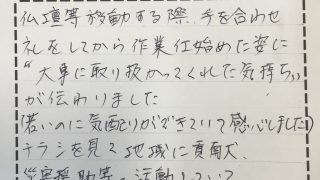 仏壇等移動する際、手を合わせ
礼をしてから作業仕始めた姿に
"大事に取り扱かってくれた気持ち"
が伝わりました
(若いのに気配りができていて感心しました)
チラシを見て地域に貢献大
災害援助等、活動していて